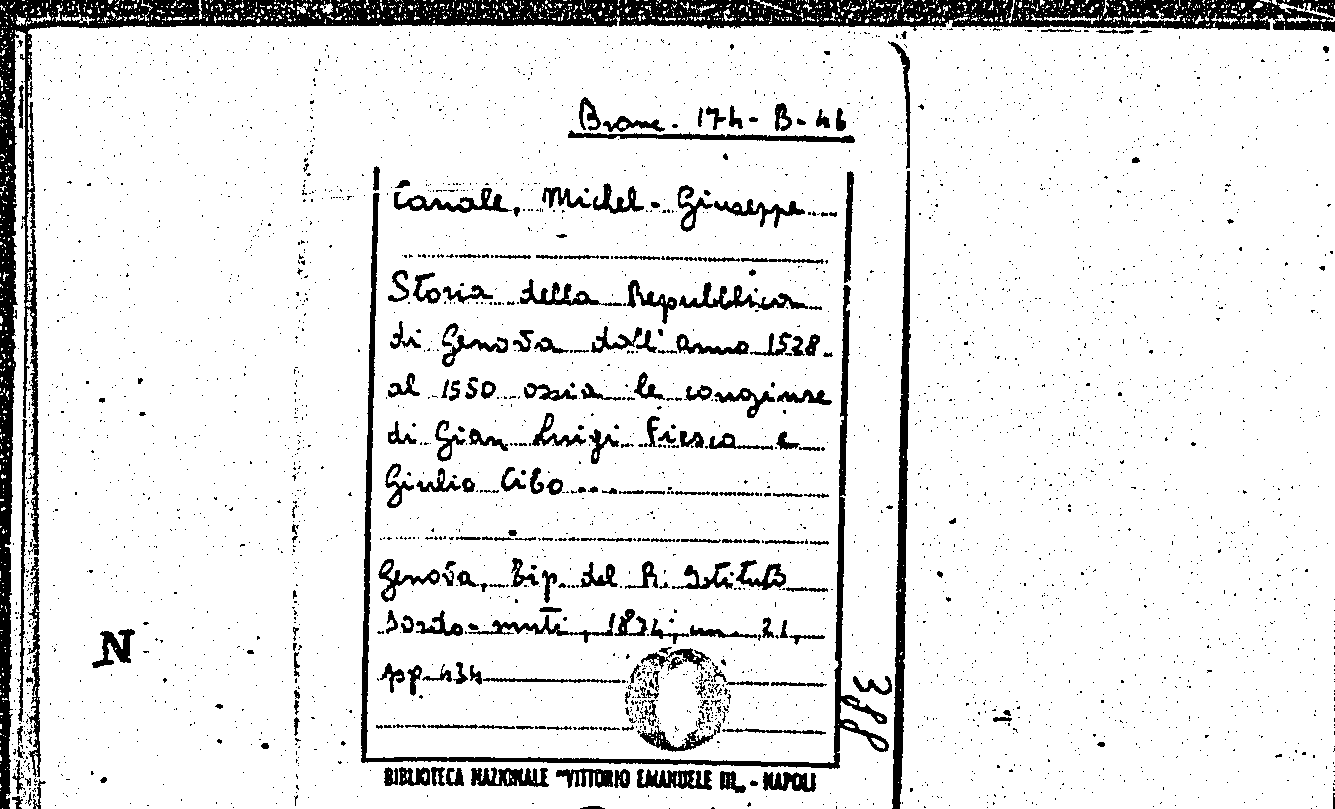 Branc. 174-B-46
Canale, Michel-Giuseppe
Storia della Repubblica
di Genova dall'anno 1528
al 1550 ossia le congiure
di Gian Luigi Fiesco e
Giulio Cibo...
Genova, Tip. del R. Istituto
Sordo-muti, 1874, cm. 21,
pp. 434
388
N
BIBLIOTECA NAZIONALE "VITTORIO EMANUELE III" - NAPOLI